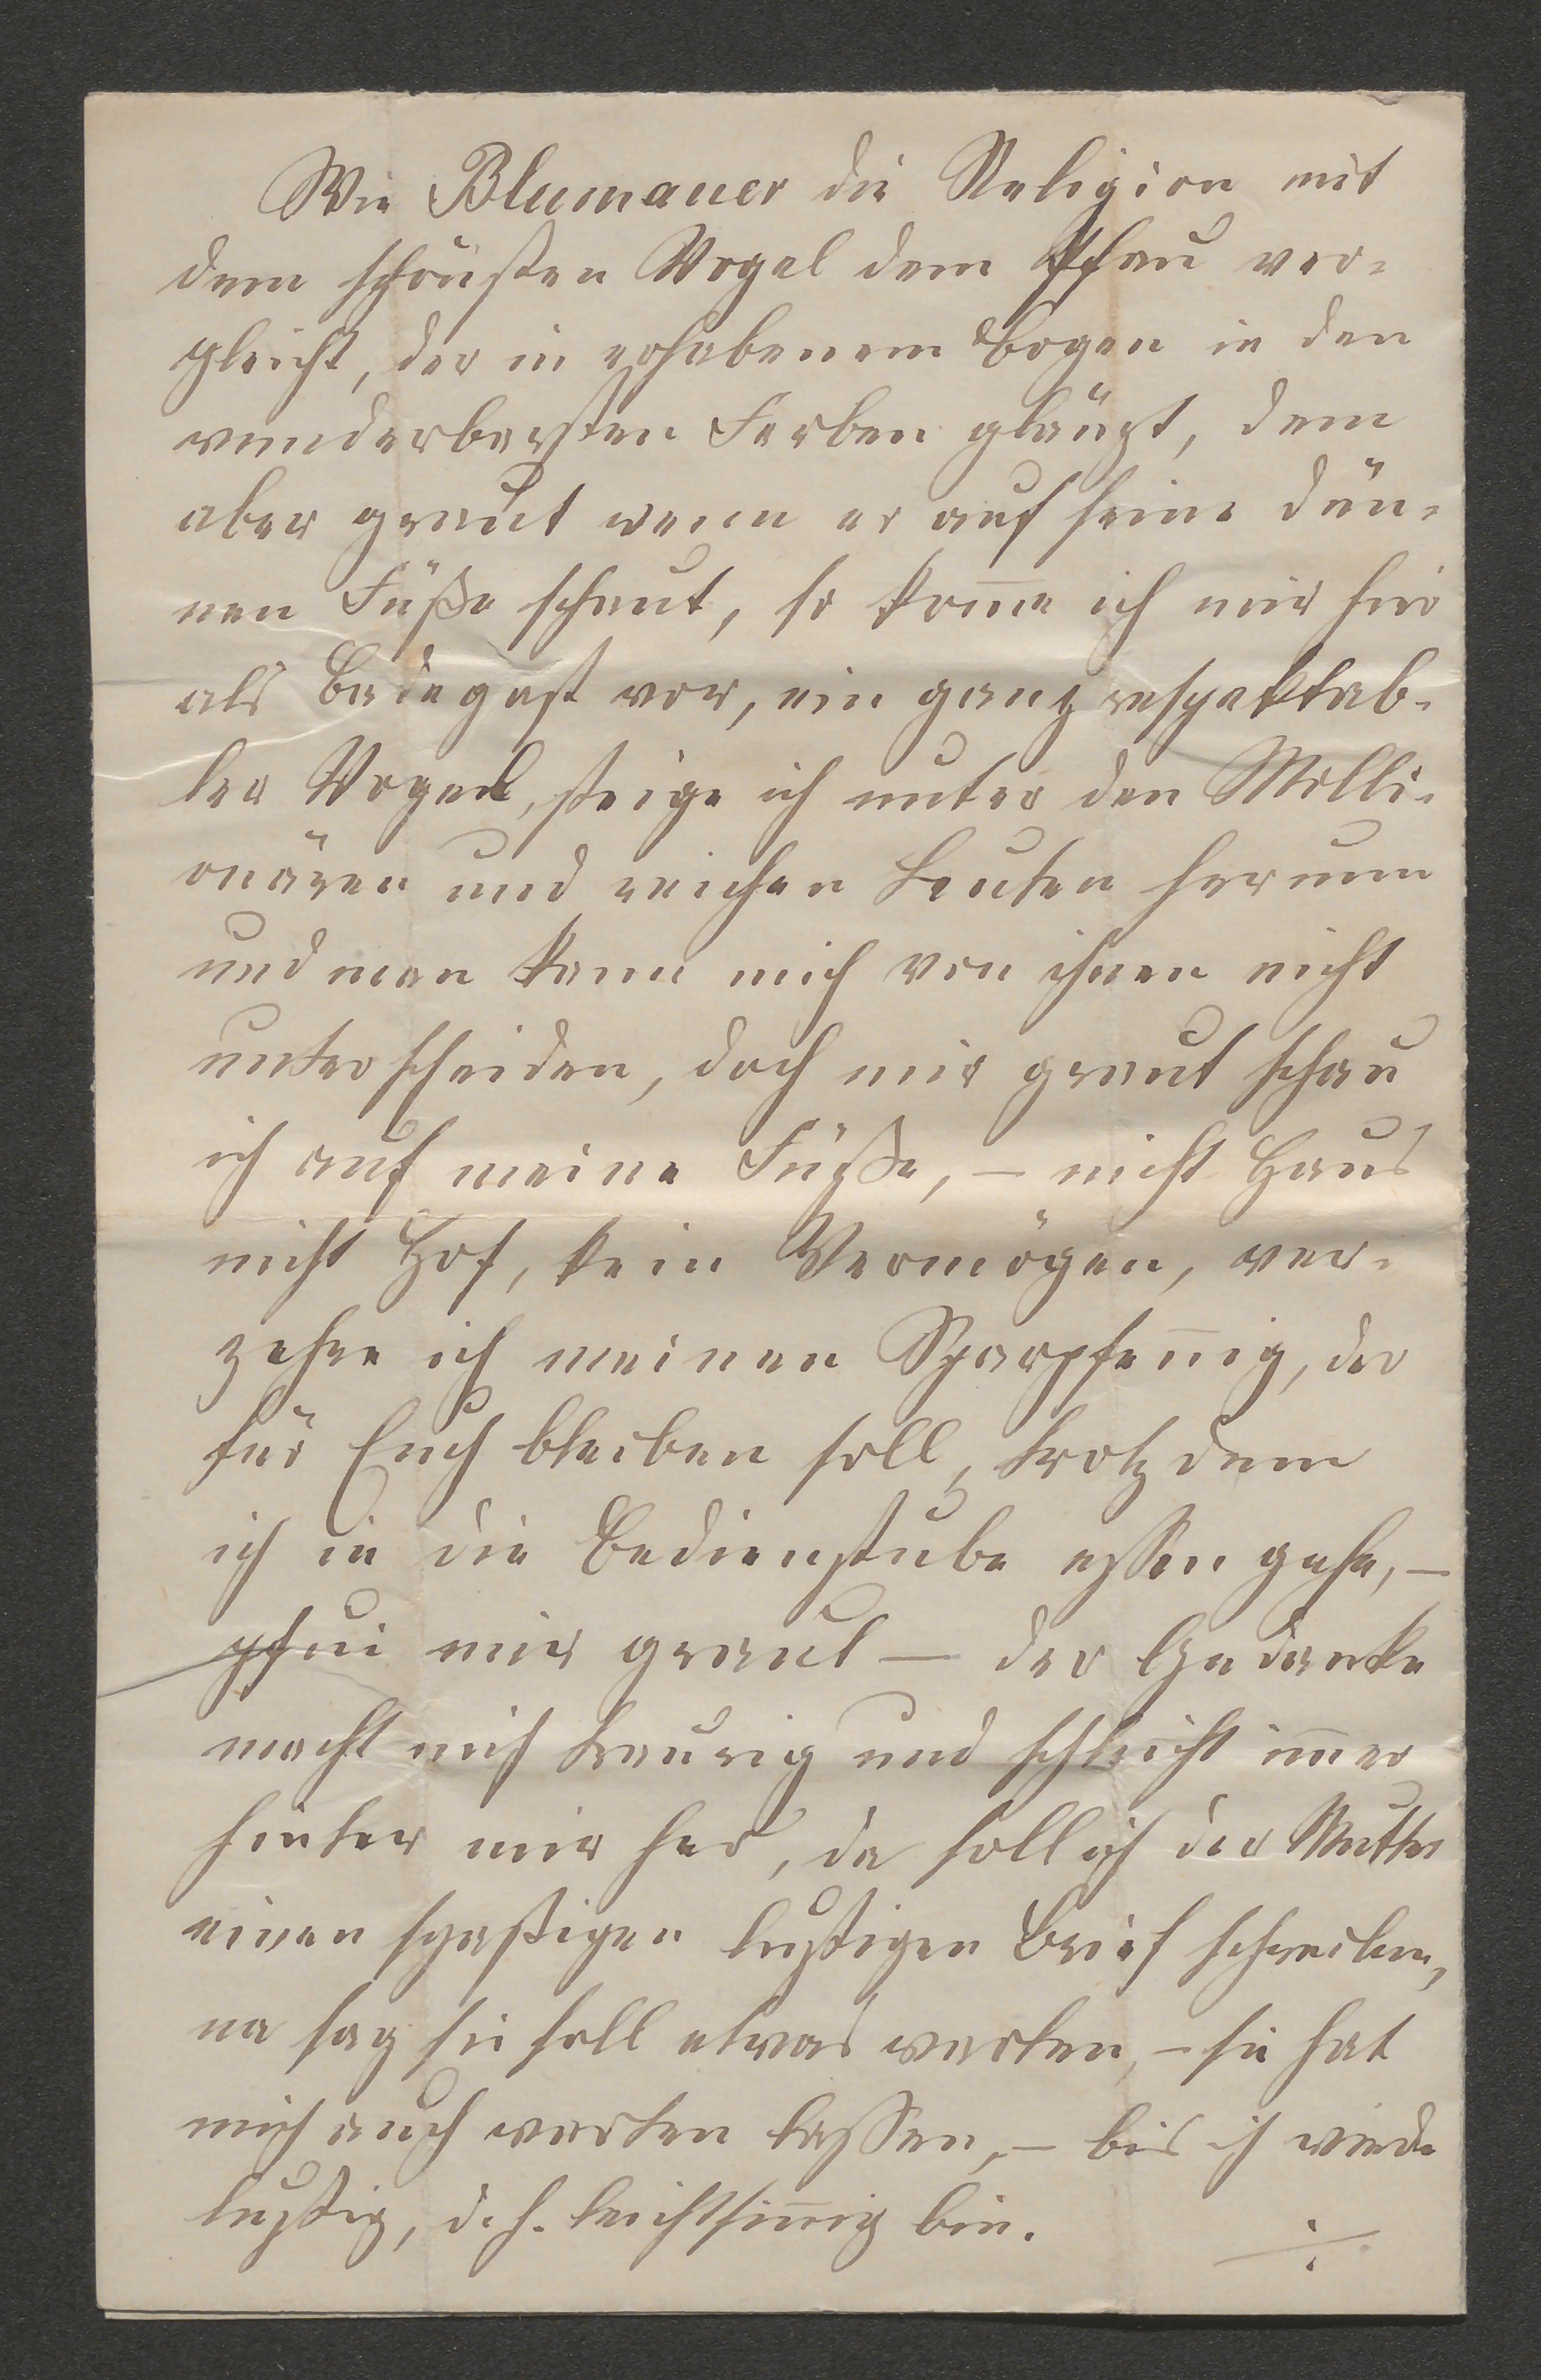 Wie Blumauer die Religion mit
dem schönsten Vogel dem Pfau ver-
gleicht, der in erhabenem Bogen in den
wunderbarsten Farben glänzt, dem
aber graut wenn er auf seine dün-
nen Füße schaut, so kom̅e ich mir hier
als Badegast vor, ein ganz respektab-
ler Vogel, steige ich unter den Milli-
onären und reichen Leuten herum
und man kann mich von ihnen nicht
unterscheiden, doch mir graut schau
ich auf meine Füße, – nicht Haus
nicht Hof, kein Vermögen, ver-
zehre ich meinen Sparpfen̅ig, der
für Euch bleiben soll, trotzdem
ich in die Bedienstube essen gehe, –
pfui mir graut – der Gedanke
macht mich traurig und schleicht im̅er
hinter mir her, da soll ich der Mutter
einen spaßigen lustigen Brief schreiben,
na sag sie soll etwas warten, – sie hat
mich auch warten lassen, – bis ich wieder
lustig, d. h. leichtsin̅ig bin.
./.